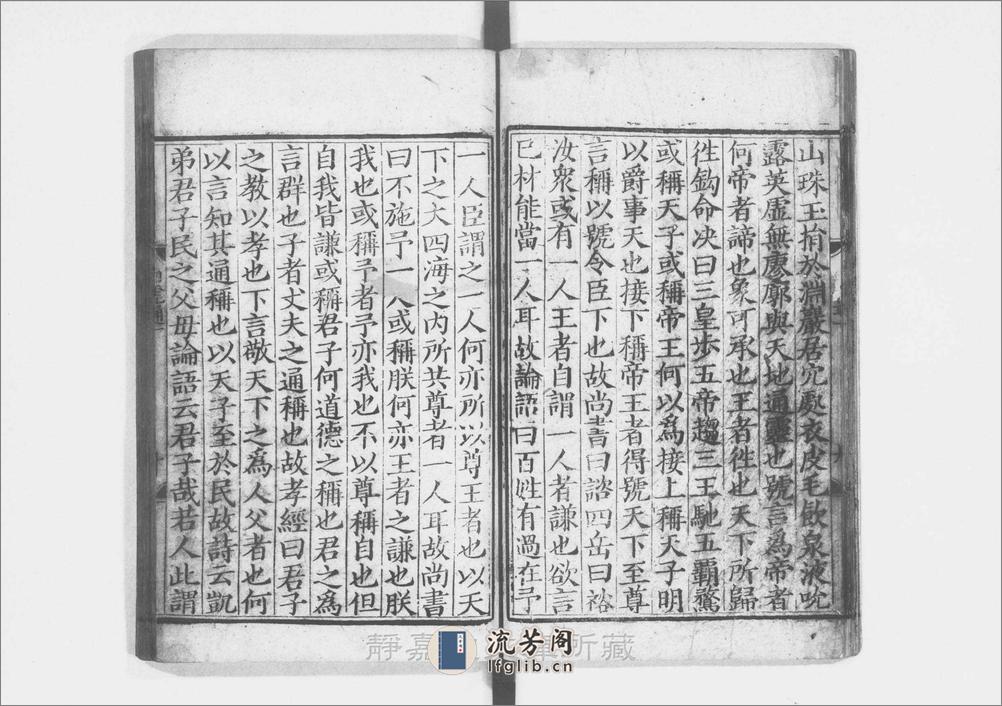 山珠玉捐於淵巖居穴處衣皮毛飲泉液吮
露英虛無廖廓與天地通靈也號言爲帝者
何帝者諦也象可承也王者徃也天下所歸
徃鈎命决曰三皇歩五帝趨三王馳五霸騖
或稱天子或稱帝王何以爲接上稱天子明
以爵事天也接下稱帝王者得號天下至尊
言稱以號令臣下也故尚書曰諮四岳曰裕
汝衆或有一人王者自謂一人者謙也欲言
已材能當一人耳故論語曰百姓有過在予
一人臣謂之一人何亦所以尊王者也以天
下之大四海之内所共尊者一人耳故尚書
曰不施予一人或稱朕何亦王者之謙也朕
我也或稱予者予亦我也不以尊稱自也但
自我皆謙或稱君子何道德之稱也君之爲
言群也子者丈夫之通稱也故孝經曰君子
之教以孝也下言敬天下之爲人父者也何
以言知其通稱也以天子至於民故詩云凱
弟君子民之父母論語云君子哉若人此謂
靜嘉
所藏
流芳阁
lfglib.cn